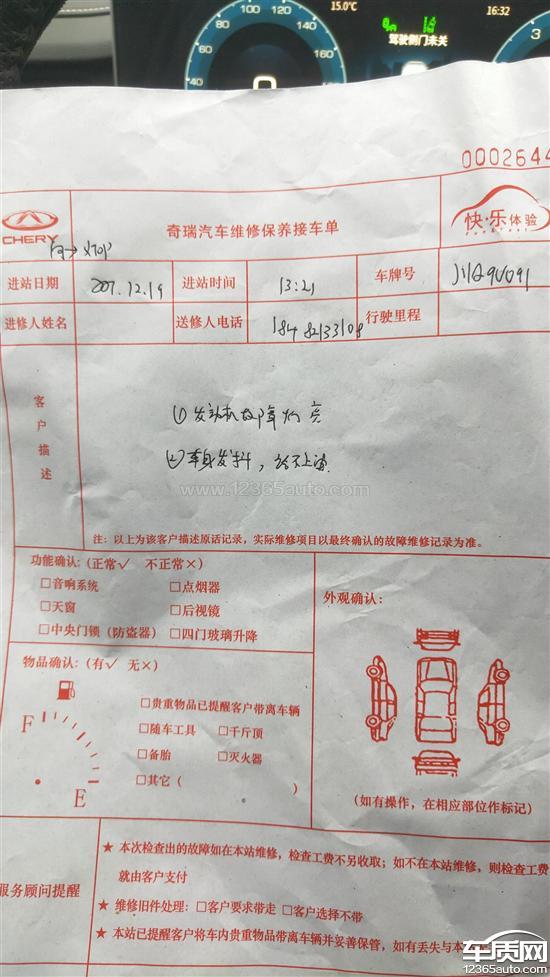 100 120
80
60
40
15.0℃
16:32
驾驶侧门未关
3
0002644
CHERY
奇瑞汽车维修保养接车单
快·乐体验
进站日期
进站时间
13:21
车牌号
进修人姓名
送修人电话
18482133108
行驶里程
客户描述
①发动机故障灯亮
②车身发抖，给不上油
www.12365auto.com
注：以上为该客户描述原话记录，实际维修项目以最终确认的故障维修记录为准。
功能确认：(正常√ 不正常×)
□音响系统 □点烟器
□天窗 □后视镜
□中央门锁（防盗器） □四门玻璃升降
外观确认：
物品确认：(有√ 无×)
F
E
□贵重物品已提醒客户带离车辆
□随车工具 □千斤顶
□备胎 □灭火器
□其它（ ）
(如有操作，在相应部位作标记)
服务顾问提醒
★ 本次检查出的故障如在本站维修，检查工费不另收取；如不在本站维修，则检查工费
就由客户支付
★ 维修旧件处理：□客户要求带走 □客户选择不带
★ 本站已提醒客户将车内贵重物品带离车辆并妥善保管，如有丢失与本
车质网
12365auto.com